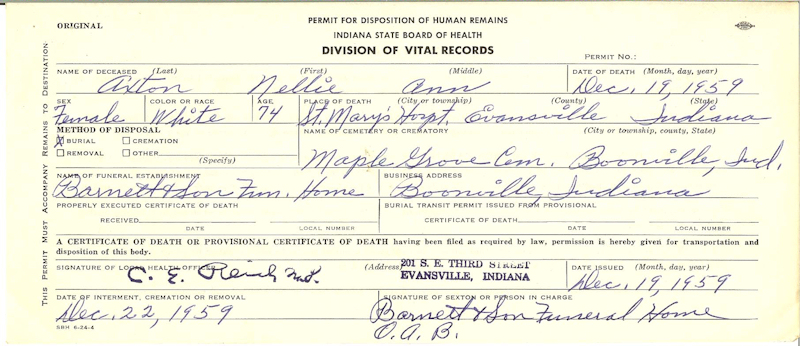 ORIGINAL
PERMIT FOR DISPOSITION OF HUMAN REMAINS
INDIANA STATE BOARD OF HEALTH
DIVISION OF VITAL RECORDS
PERMIT NO.:
This Permit Must Accompany Remains to Destination
NAME OF DECEASED (Last) (First) (Middle) DATE OF DEATH (Month, day, year)
Axton Nellie Ann Dec. 19, 1959
SEX COLOR OR RACE AGE PLACE OF DEATH (City or township) (County) (State)
Female White 74 St. Mary's Hospt. Evansville Indiana
METHOD OF DISPOSAL NAME OF CEMETERY OR CREMATORY (City or township, county, State)
X BURIAL CREMATION
REMOVAL OTHER
(Specify)
Maple Grove Cem. Boonville, Ind.
NAME OF FUNERAL ESTABLISHMENT BUSINESS ADDRESS
Barnett & Son Fun. Home Boonville, Indiana
PROPERLY EXECUTED CERTIFICATE OF DEATH BURIAL TRANSIT PERMIT ISSUED FROM PROVISIONAL
RECEIVED CERTIFICATE OF DEATH
DATE LOCAL NUMBER DATE LOCAL NUMBER
A CERTIFICATE OF DEATH OR PROVISIONAL CERTIFICATE OF DEATH having been filed as required by law, permission is hereby given for transportation and
disposition of this body.
SIGNATURE OF LOCAL HEALTH OFFICER (Address) 201 S. E. THIRD STREET DATE ISSUED (Month, day, year)
C. E. EVANSVILLE, INDIANA Dec. 19, 1959
DATE OF INTERMENT, CREMATION OR REMOVAL SIGNATURE OF SEXTON OR PERSON IN CHARGE
Dec. 22, 1959 Barnett & Son Funeral Home
O. A. B.
SBH 6-24-4